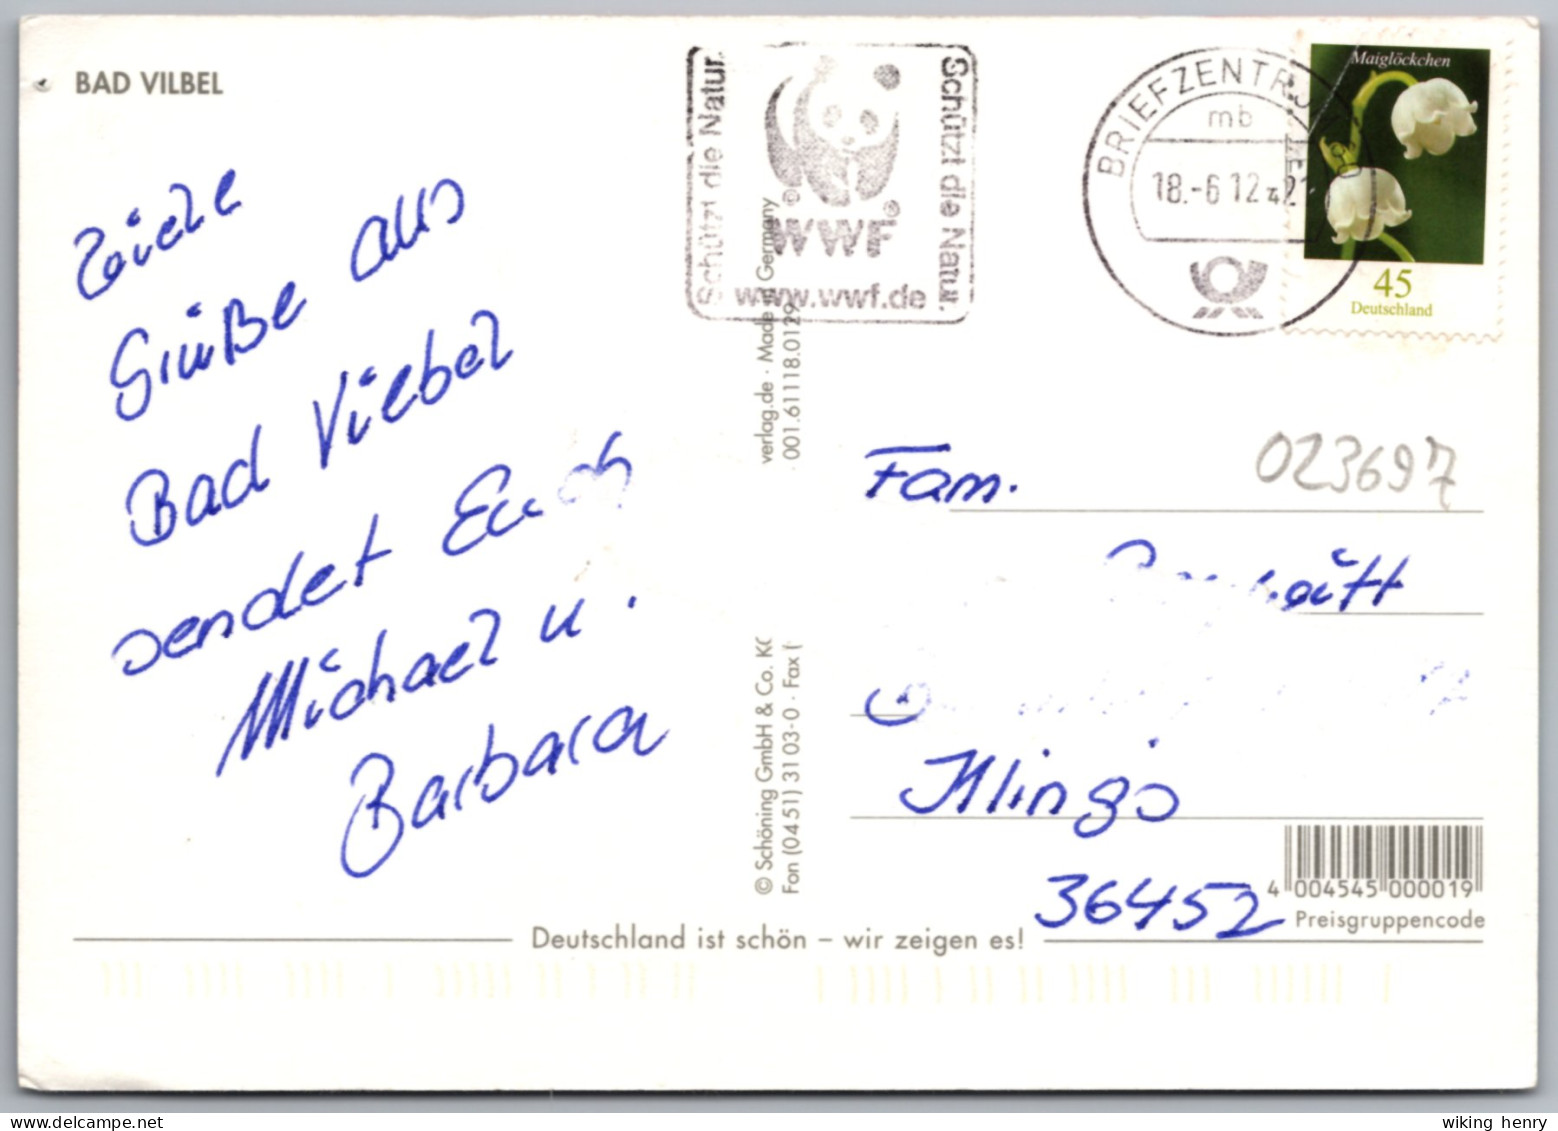 BAD VILBEL
Schützt die Natur.
Schützt die Natur.
WWF
www.wwf.de
BRIEFZENTRU
mb
18.-6 12 - 21
Maiglöckchen
45
Deutschland
Grüße aus
Bad Vilbel
sendet Euch
Michael u.
Barbara
verlag.de · Made in Germany
001.61118.0129
© Schöning GmbH & Co. KG
Fon (04 51) 31 03-0 · Fax (
023697
Fam.
Klingo
36452
4 004545 000019
Preisgruppencode
Deutschland ist schön – wir zeigen es!
wiking henry